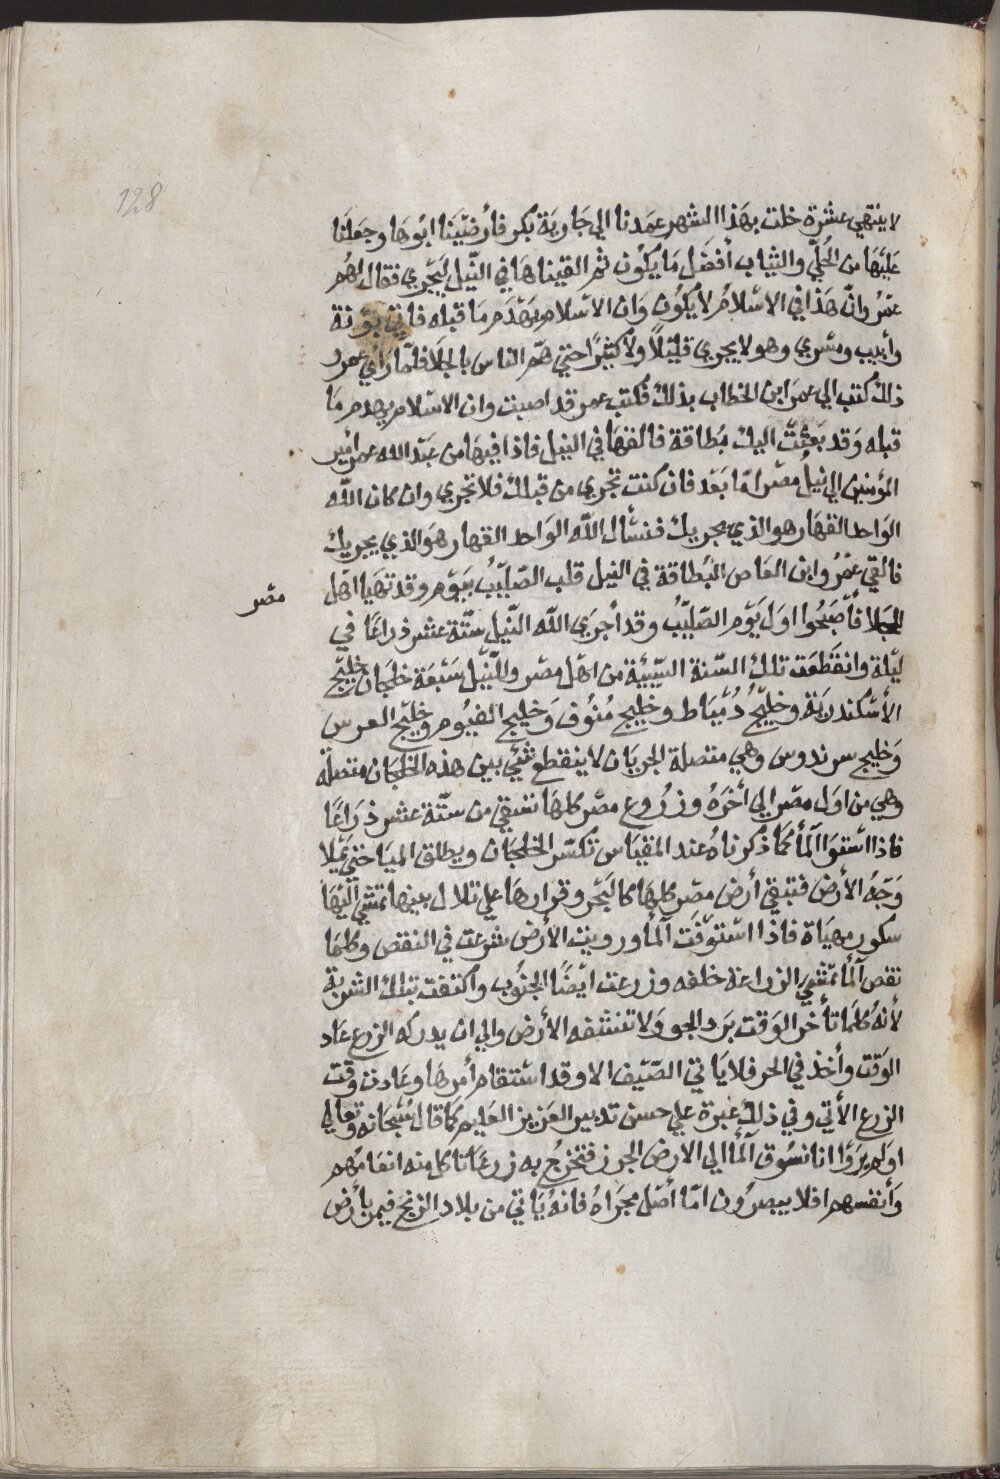 128
لاينتهي عشرة خلت بهذا الشهر عمدنا الي جارية بكر فأرضينا ابوها وجعلنا
عليها من الحلي والثياب أفضل ما يكون ثم القيناها في النيل ليجري فقال لهم
عمرُوانّ هذا في الاسلام لا يكون وان الاسلام يهدم ما قبله فاتي بؤنة
وأبيب ومسري وهو لا يجري قليلاً ولا كثيرًا حتي همّ الناس بالجلا فلمّا راي عمرو
ذلك كتب الي عمر ابن الخطاب بذلك فكتب عمر قد اصبت وان الاسلام يهدم ما
قبله وقد بعثتُ اليك بُطاقة فالقها في النيل فاذا فيها من عبد الله عمر امير
المؤمنين الي نيل مصر امّا بعد فان كنت تجري من قبلك فلا تجري وان كان الله
الواحد القهار هو الذي يجريك فنسأل الله الواحد القهار هو الذي يجريك
فالقي عمرُو ابن العاص البُطاقة في النيل قلب الصّليب بيوم وقد تهيا اهل
مصر
للجلا فأصبحوا اول يوم الصّليب وقد أجري الله النّيل ستّة عشر ذراعًا في
ليلة وانقطعت تلك السّنة السّيئة من اهل مصر وللنّيل سبعة خلجان خليج
الأسكندرية وخليج دُمياط وخليج مُنوف وخليج الفيُوم وخليج العرس
وخليج سرندوس وهي متصلة الجريان لا ينقطع شئي بين هذه الخلجان متصلة
وهي من اول مصر الي أخره وزروع مصر كلها تسقي من ستّة عشر ذراعًا
فاذا استوا المأ كما ذكرناه عند المقياس تكسر الخلجان ويطلق المياحتي يملا
وجهُ الأرض فتبقي أرض مصر كلها كالبحر وقراها علي تلال بينها تمتشي اليها
سكور مهياة فاذا استوفت المأ ورويت الأرض شرعت في النقص وكلما
نقص المأ تمشي الزراعة خلفه وزرعت ايضًا الجنُوب واكتفت بتلك الشربة
لأنه كلما تأخر الوقت برد الجو ولا تنشفه الأرض والي ان يدركه الزرع عاد
الوقت وأخذ في الحر فلا ياتي الصّيف الا وقد استقام أمرها وعادت وقت
الزرع الأتي وفي ذلك عبرة علي حسن تدبير العزيز العليم كما قال سُبحانه وتعالي
اولم يروا انا نسُوق المأ الي الارض الجرز فتخرجُ به زرعًا تاكل منه انعامهم
وأنفسهم افلا يبصرُون امّا أصل مجراهُ فانهُ ياتي من بلاد الزنج فيمر بأرض